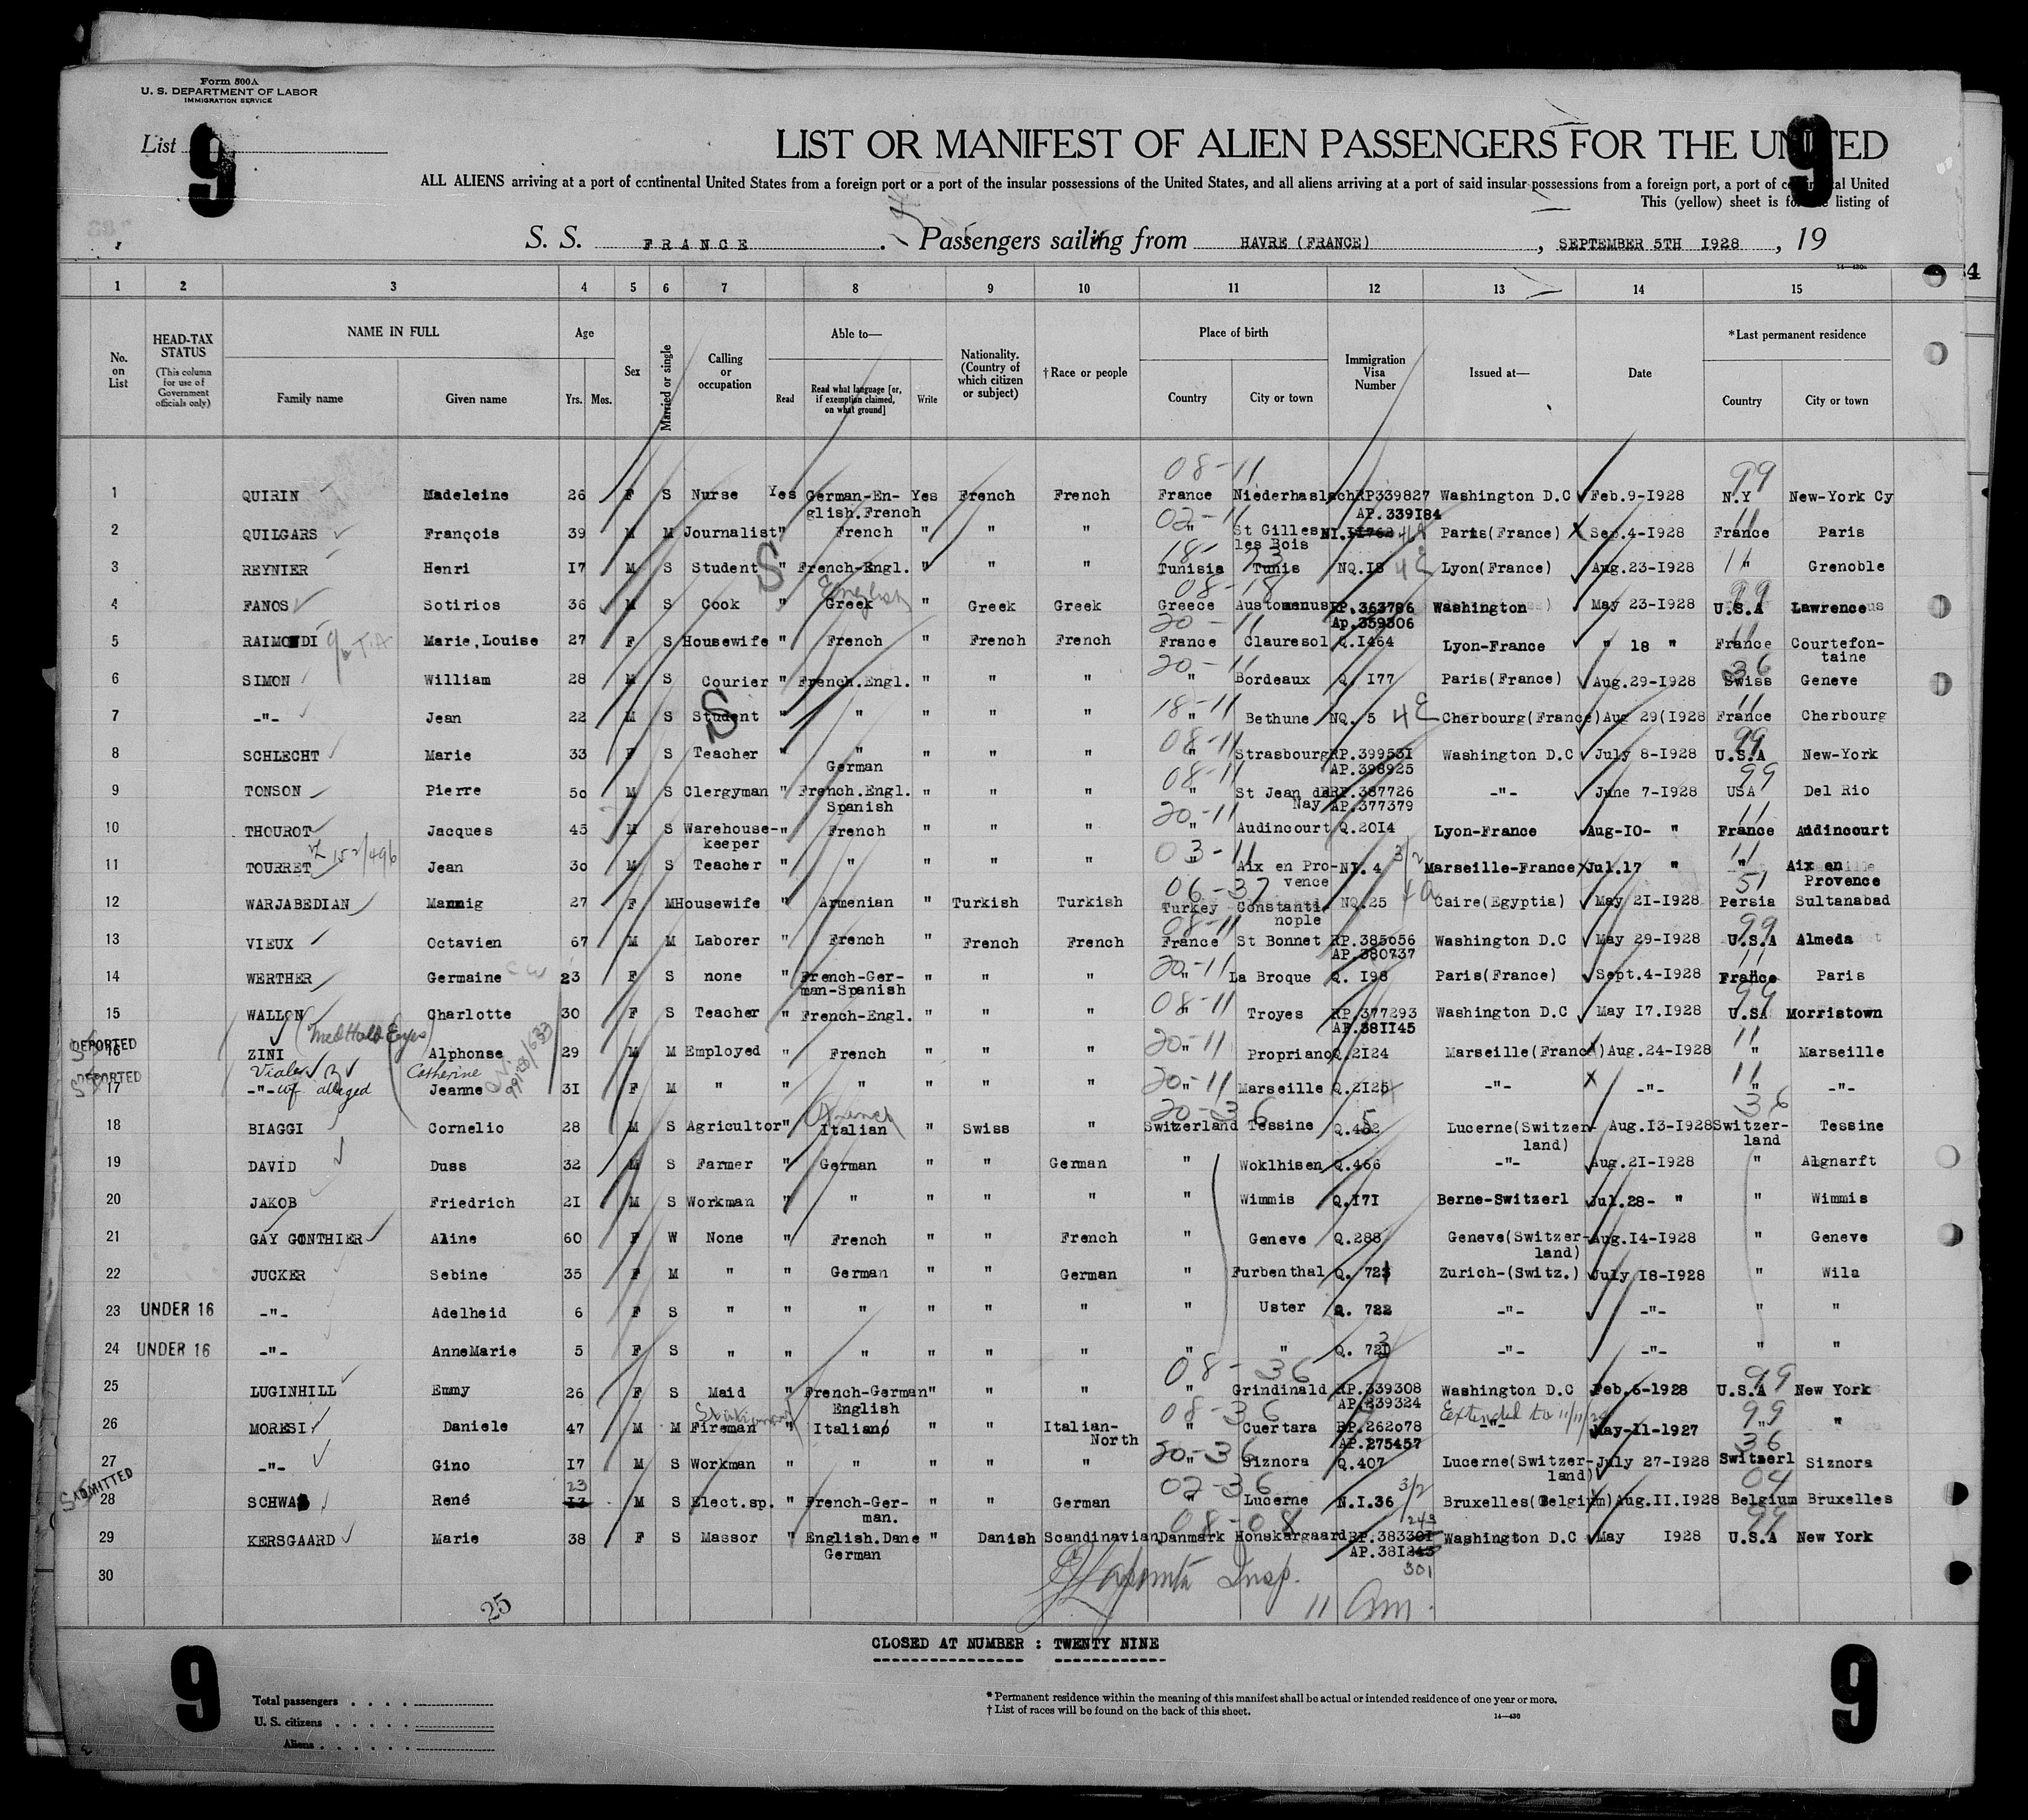 Form 500A
U. S. DEPARTMENT OF LABOR
IMMIGRATION SERVICE
List 9
9
LIST OR MANIFEST OF ALIEN PASSENGERS FOR THE UNITED
ALL ALIENS arriving at a port of continental United States from a foreign port or a port of the insular possessions of the United States, and all aliens arriving at a port of said insular possessions from a foreign port, a port of continental United
This (yellow) sheet is for the listing of
S. S. FRANCE . Passengers sailing from HAVRE (FRANCE) , SEPTEMBER 5TH 1928 , 19
1 2 3 4 5 6 7 8 9 10 11 12 13 14 15
No. on List HEAD-TAX STATUS (This column for use of Government officials only) NAME IN FULL Family name Given name Age Yrs. Mos. Sex Married or single Calling or occupation Able to— Read Read what language [or, if exemption claimed, on what ground] Write Nationality. (Country of which citizen or subject) †Race or people Place of birth Country City or town Immigration Visa Number Issued at— Date *Last permanent residence Country City or town
08-11 99
1 QUIRIN Madeleine 26 F S Nurse Yes German-En- Yes French French France Niederhaslach RP339827 Washington D.C Feb.9-1928 N.Y New-York Cy
glish.French AP.339184
02-11 11
2 QUILGARS François 39 M M Journalist " French " " " " St Gilles NI.11762 Paris(France) Sep.4-1928 France Paris
les Bois
18-
3 REYNIER Henri 17 M S Student " French-Engl. " " " Tunisia Tunis NQ.18 Lyon(France) Aug.23-1928 " Grenoble
S English 08-18 99
4 FANOS Sotirios 36 M S Cook " Greek " Greek Greek Greece Austomenus RP.363786 Washington May 23-1928 U.S.A Lawrence
20-11 Ap.359306 11
5 RAIMONDI Marie,Louise 27 F S Housewife " French " French French France Clauresol Q.1464 Lyon-France " 18 " France Courtefon-
taine
20-11 36
6 SIMON William 28 M S Courier " French.Engl. " " " " Bordeaux Q. 177 Paris(France) Aug.29-1928 Swiss Geneve
S 18-11 11
7 -"- Jean 22 M S Student " " " " " " Bethune NQ. 5 Cherbourg(France) Aug 29(1928 France Cherbourg
08-11 99
8 SCHLECHT Marie 33 F S Teacher " " " " " " Strasbourg RP.399531 Washington D.C July 8-1928 U.S.A New-York
German AP.398925
08-11 99
9 TONSON Pierre 50 M S Clergyman " French.Engl. " " " " St Jean de RP.387726 -"- June 7-1928 USA Del Rio
Spanish Nay AP.377379
20-11 11
10 THOUROT Jacques 45 M S Warehouse- " French " " " " Audincourt Q.2014 Lyon-France Aug-10- " France Audincourt
keeper
03-11 3/2 11
11 TOURRET Jean 30 M S Teacher " " " " " " Aix en Pro- NI. 4 Marseille-France Jul.17 " " Aix en
vence Provence
06-37 51
12 WARJABEDIAN Mannig 27 F M Housewife " Armenian " Turkish Turkish Turkey Constanti- NQ.25 Caire(Egyptia) May 21-1928 Persia Sultanabad
nople
08-11 99
13 VIEUX Octavien 67 M M Laborer " French " French French France St Bonnet RP.385056 Washington D.C May 29-1928 U.S.A Almeda
AP.380737
20-11 11
14 WERTHER Germaine 23 F S none " French-Ger- " " " " La Broque Q. 198 Paris(France) Sept.4-1928 France Paris
man-Spanish
08-11 99
15 WALLON Charlotte 30 F S Teacher " French-Engl. " " " " Troyes RP.377293 Washington D.C May 17.1928 U.S.A Morristown
AP.381145
(Med Hold Eyes)
DEPORTED 20-11 11
16 ZINI Alphonse 29 M M Employed " French " " " " Propriano Q.2124 Marseille(France) Aug.24-1928 " Marseille
Catherine
DEPORTED 20-11 11
17 -"- wf alleged Jeanne 31 F M " " " " " " " Marseille Q.2125 -"- -"- " -"-
French 20-36 5 36
18 BIAGGI Cornelio 28 M S Agricultor " Italian " Swiss " Switzerland Tessine Q.402 Lucerne(Switzer- Aug.13-1928 Switzer- Tessine
land) land
19 DAVID Duss 32 M S Farmer " German " " German " Woklhisen Q.466 -"- Aug.21-1928 " Algnarft
20 JAKOB Friedrich 21 M S Workman " " " " " " Wimmis Q.171 Berne-Switzerl Jul.28- " " Wimmis
21 GAY GONTHIER Aline 60 F W None " French " " French " Geneve Q.288 Geneve(Switzer- Aug.14-1928 " Geneve
land)
22 JUCKER Sebine 35 F M " " German " " German " Furbenthal Q. 721 Zurich-(Switz.) July 18-1928 " Wila
23 UNDER 16 -"- Adelheid 6 F S " " " " " " " Uster Q. 722 -"- -"- " "
24 UNDER 16 -"- AnneMarie 5 F S " " " " " " " " Q. 723 -"- -"- " "
08-36 99
25 LUGINHILL Emmy 26 F S Maid " French-German " " " " Grindinald RP.339308 Washington D.C Feb.6-1928 U.S.A New York
English AP.339324
08-36 Extended to 99
26 MORESI Daniele 47 M M Fireman " Italian " " Italian- " Cuertara RP.262078 -"- May-11-1927 " "
North AP.275457
20-36 36
27 -"- Gino 17 M S Workman " " " " " " Siznora Q.407 Lucerne(Switzer- July 27-1928 Switzerl Siznora
land)
ADMITTED 23 02-36 3/2 04
28 SCHWAB René 13 M S Elect.sp. " French-Ger- " " German " Lucerne N.I.36 Bruxelles(Belgium) Aug.11.1928 Belgium Bruxelles
man.
08-08 243 99
29 KERSGAARD Marie 38 F S Massor " English.Dane " Danish Scandinavian Danmark Honskargaard RP.383301 Washington D.C May 1928 U.S.A New York
German AP.381243
301
30 Insp.
25 11 am.
CLOSED AT NUMBER : TWENTY NINE
9
9
Total passengers . . . .
U. S. citizens . . . . .
Aliens . . . . . .
* Permanent residence within the meaning of this manifest shall be actual or intended residence of one year or more.
† List of races will be found on the back of this sheet.
14—430